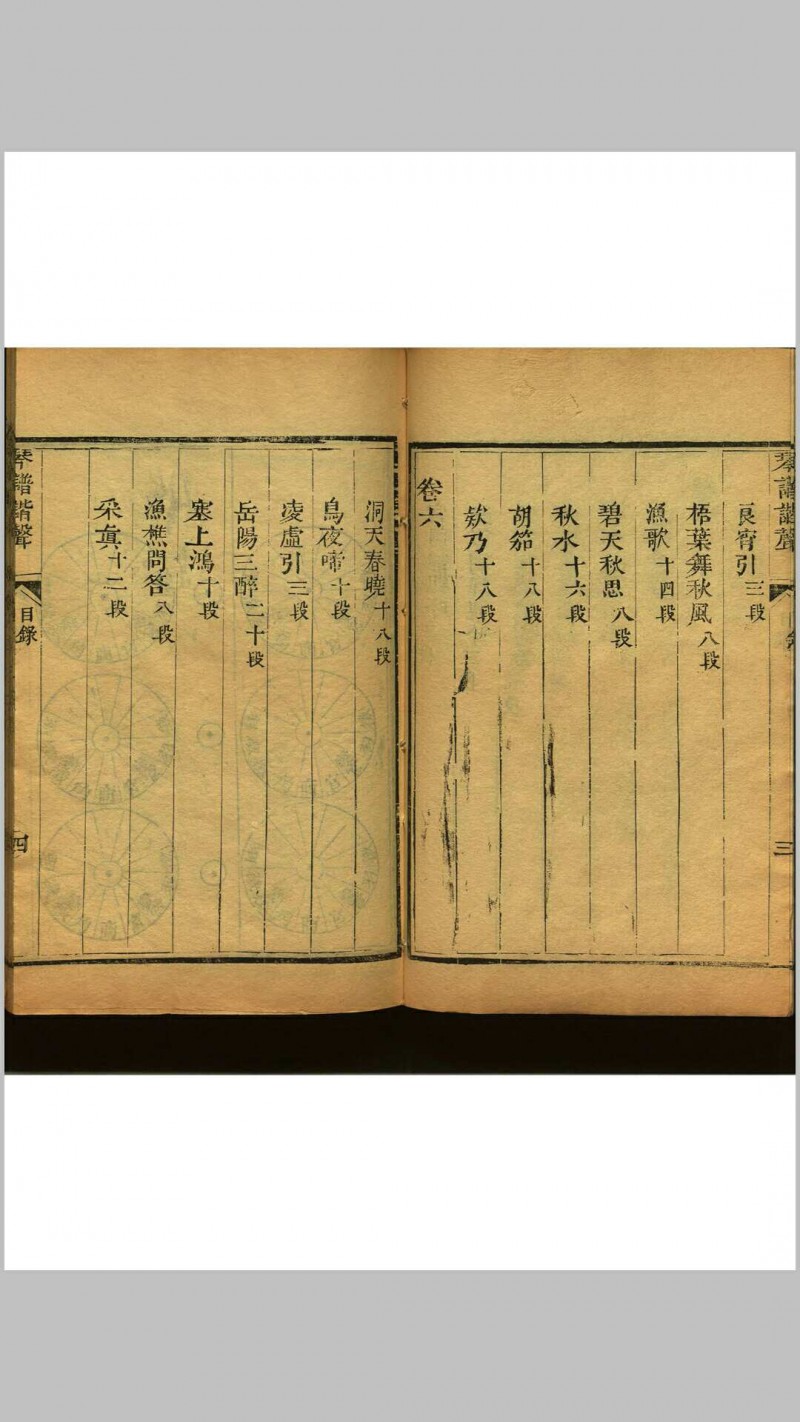 琴譜諧聲
三
良宵引三段
梧葉舞秋風八段
漁歌十四段
碧天秋思八段
秋水十六段
胡笳十八段
欸乃十八段
卷六
洞天春曉十八段
烏夜啼十段
凌虛引三段
岳陽三醉二十段
塞上鴻十段
漁樵問答八段
采真十二段
琴譜諧聲
目錄
四